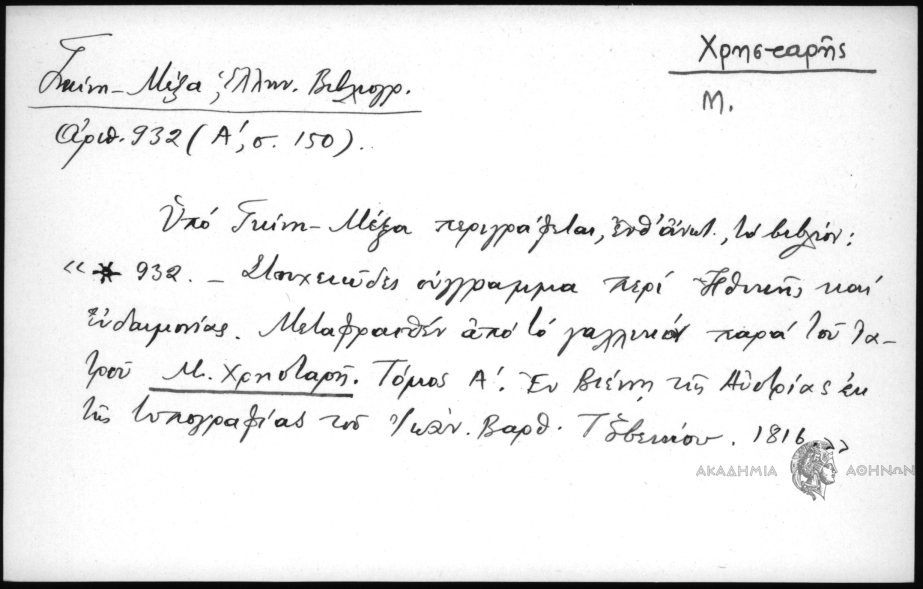 Χρησταρῆς
Μ.
Γκίνη - Μέξα, Ἑλλην. Βιβλιογρ.
Ἀριθ. 932 (Α΄, σ. 150).
Ὑπό Γκίνη - Μέξα περιγράφεται, ἐνθ' ἀνωτ., τό βιβλίον:
«* 932. - Στοιχειῶδες σύγγραμμα περί Ἠθικῆς καί
Εὐδαιμονίας. Μεταφρασθέν ἀπό τό γαλλικόν παρά τοῦ Ἰα-
τροῦ Μ. Χρησταρῆ. Τόμος Α΄. Ἐν Βιέννῃ τῆς Αὐστρίας ἐκ
τῆς τυπογραφίας τοῦ Ἰωάν. Βαρθ. Τσβεκίου. 1816.»
ΑΚΑΔΗΜΙΑ ΑΘΗΝΩΝ